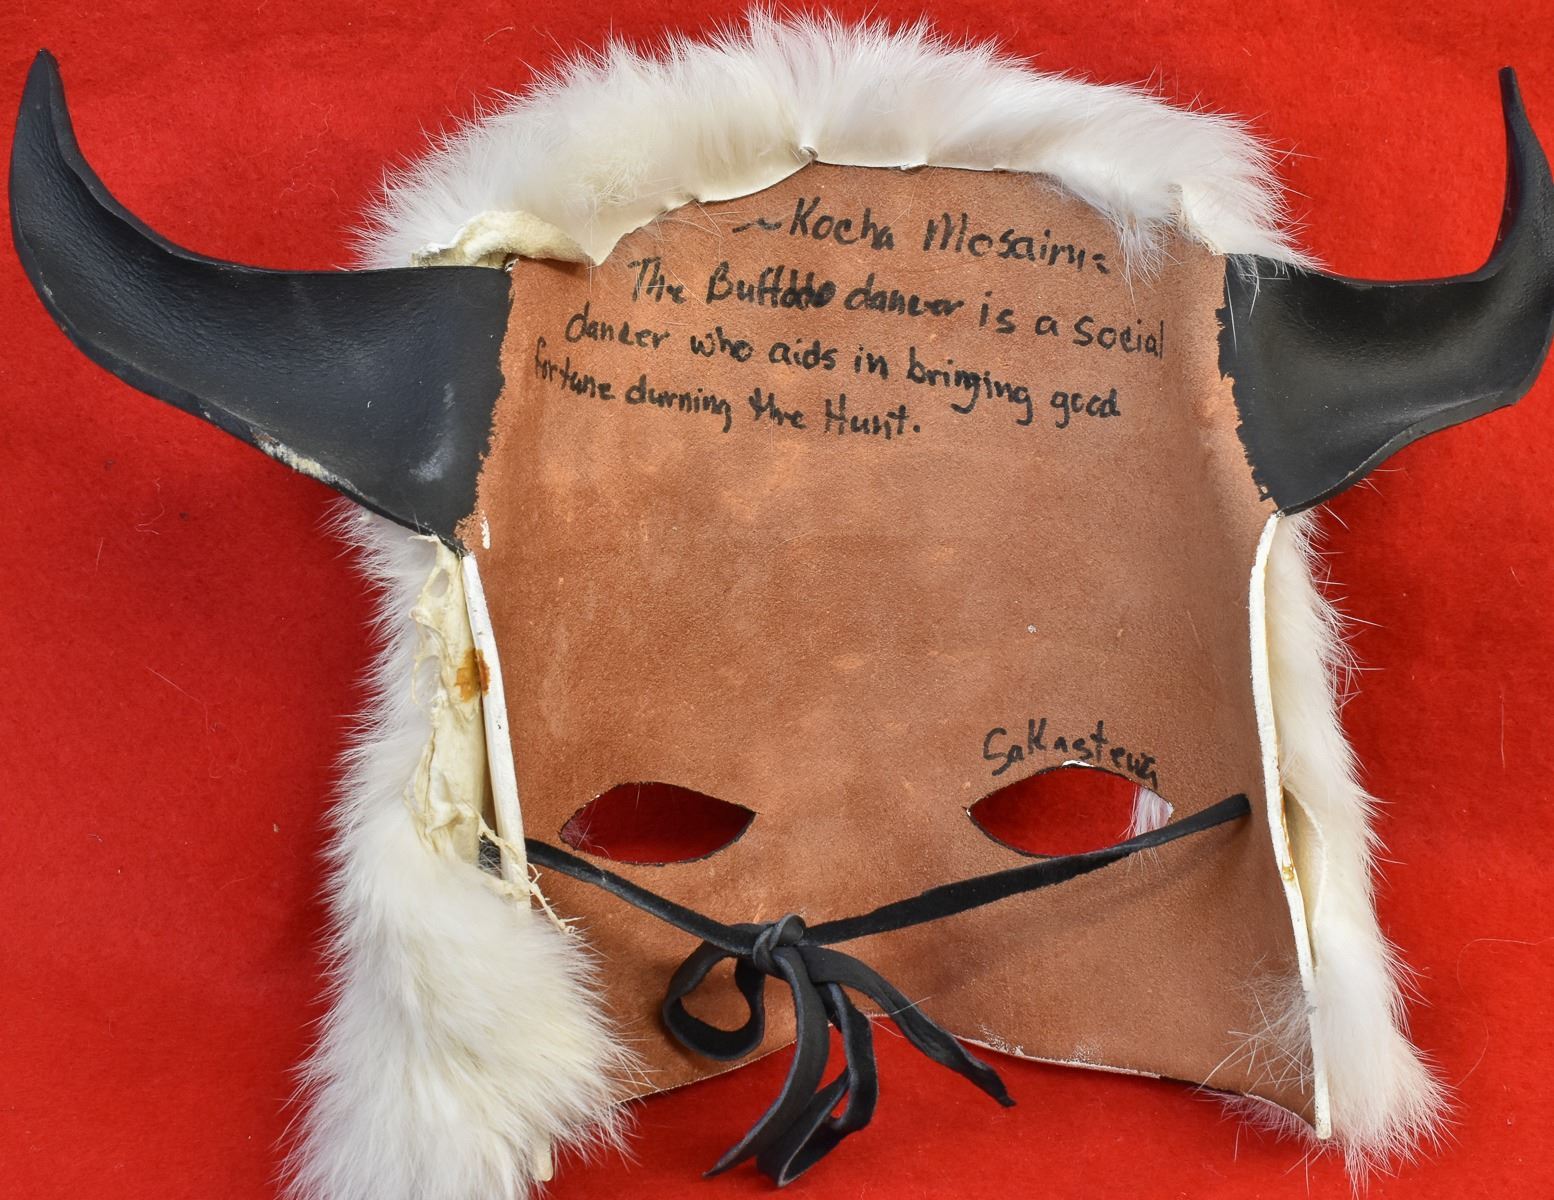 ~Kocha Mosairu~
The Buffalo dancer is a social
dancer who aids in bringing good
fortune durning the Hunt.
Sakastewa